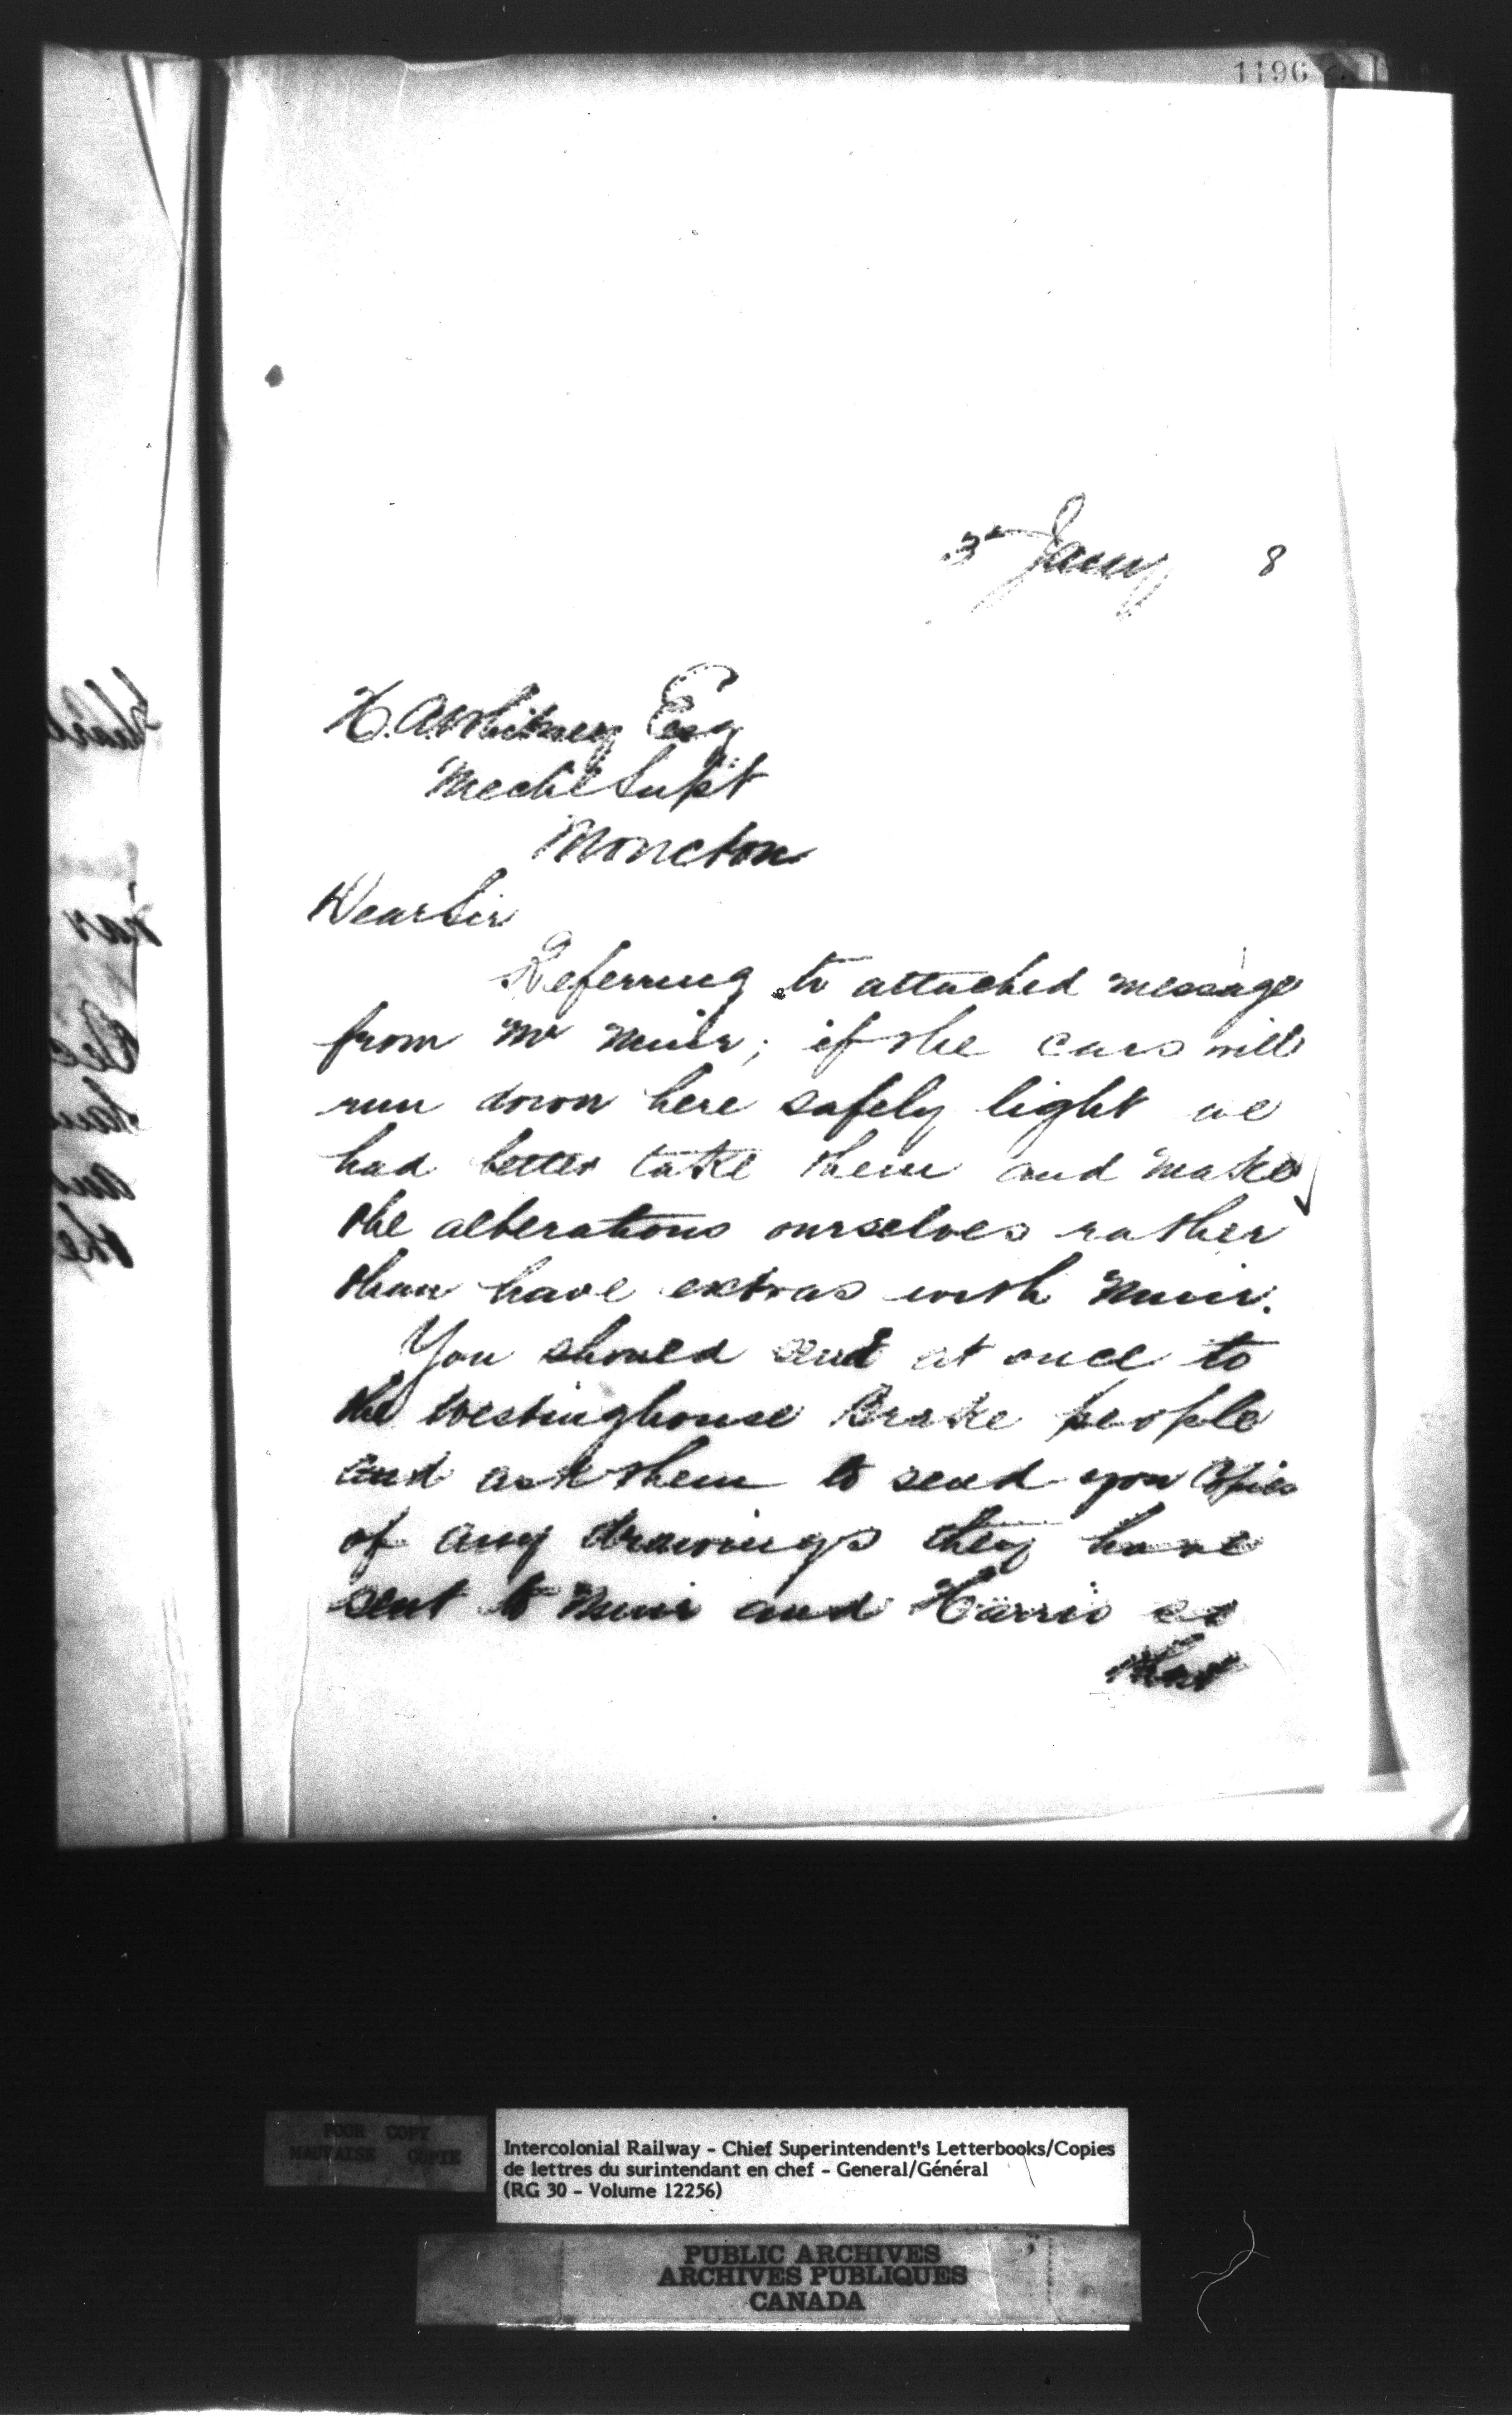 1196
3 Jany 8
H. A. Whitney Esq
Mechl Supt
Moncton
Dear Sir
Referring to attached message
from Mr Muir; if the cars will
run down here safely light we
had better take them and make
the alterations ourselves rather
than have extras with Muir.
You should send at once to
the Westinghouse Brake people
and ask them to send you copies
of any drawings they have
sent to Muir and Harris as
that
POOR COPY
MAUVAISE COPIE
Intercolonial Railway - Chief Superintendent's Letterbooks/Copies
de lettres du surintendant en chef - General/Général
(RG 30 - Volume 12256)
PUBLIC ARCHIVES
ARCHIVES PUBLIQUES
CANADA